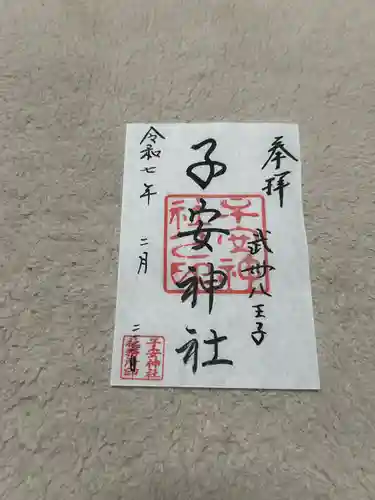 奉拝
武州八王子
子安神社
子安神
社之印
令和七年 二月
二日
子安神社